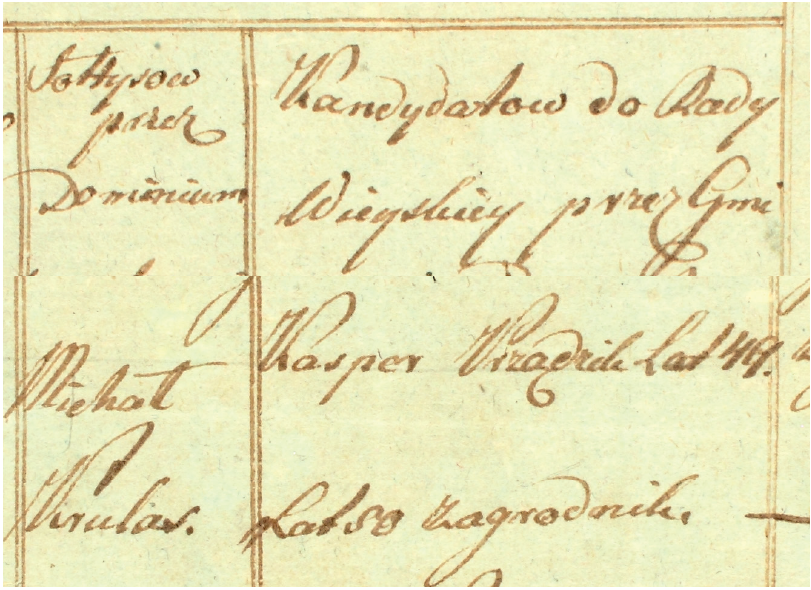 Sołtysow
przez
Dominium
Kandydatow do Rady
Wieyskiey przez Gmi
Michał
Krulas.
Kasper Lat 49.
Lat 50 Zagrodnik.